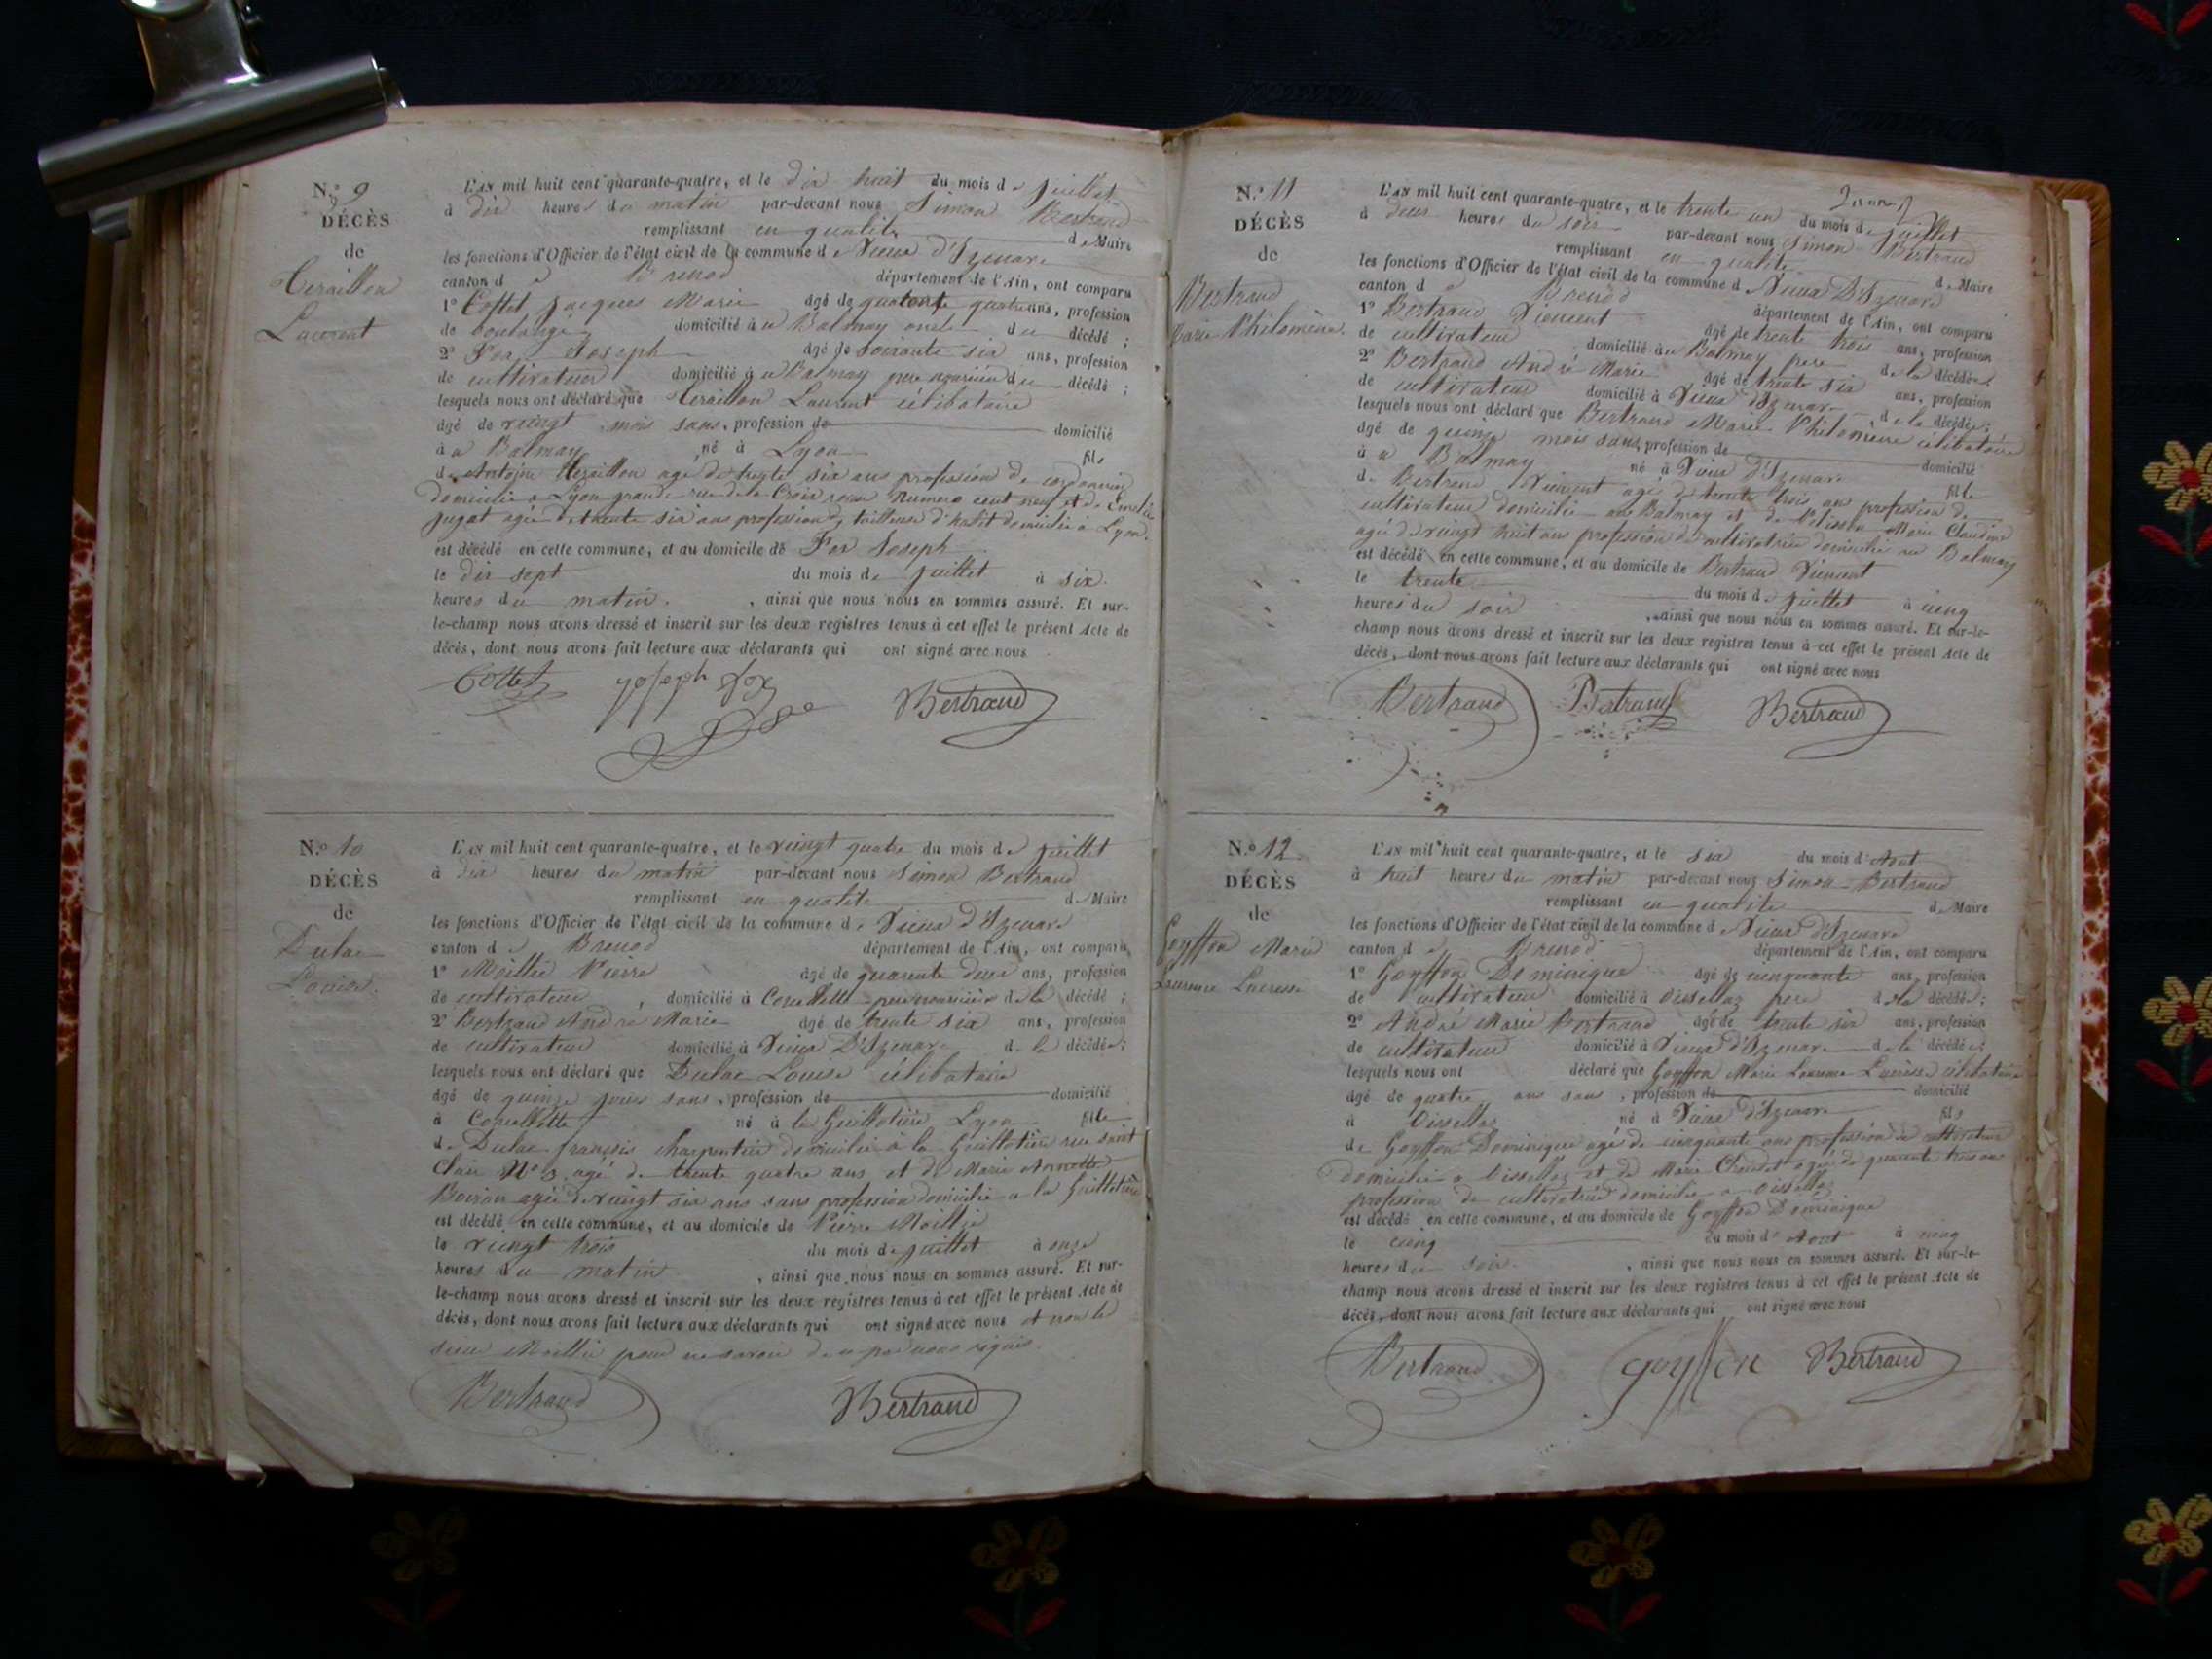 N.º 9
DÉCÈS
de
Teraillon
Laurent
L'AN mil huit cent quarante-quatre, et le dix huit du mois de juillet
à dix heures du matin par-devant nous Simon Bertrand
remplissant en qualité de Maire
les fonctions d'Officier de l'état civil de la commune de Vieux d'Izenave
canton de Brenod département de l'Ain, ont comparu
1º Cottet Jacques Marie âgé de quatre ans, profession
de boulanger domicilié à u Balmay oncle du décédé ;
2º Fox Joseph âgé de soixante six ans, profession
de cultivateur domicilié à u Balmay pere nouricier du décédé ;
lesquels nous ont déclaré que Teraillon Laurent célibataire
âgé de vingt mois sans, profession de domicilié
à u Balmay né à Lyon fils
de Antoine Teraillon agé de trente six ans profession de cordonnier
domicilié a Lyon grande rue de la Croix rousse numero cent neuf et de Emelie
Jugat agée de trente six ans profession de tailleuse d'habit domicilié à Lyon.
est décédé en cette commune, et au domicile de Fox Joseph
le dix sept du mois de juillet à six
heures du matin. , ainsi que nous nous en sommes assuré. Et sur-
le-champ nous avons dressé et inscrit sur les deux registres tenus à cet effet le présent Acte de
décès, dont nous avons fait lecture aux déclarants qui ont signé avec nous
Cottet joseph fox Bertrand
N.º 10
DÉCÈS
de
Dulac
Louise.
L'AN mil huit cent quarante-quatre, et le vingt quatre du mois de juillet
à dix heures du matin par-devant nous Simon Bertrand
remplissant en qualité de Maire
les fonctions d'Officier de l'état civil de la commune de Vieux d'Izenave
canton de Brenod département de l'Ain, ont comparu
1º Moillie Pierre âgé de quarente deux ans, profession
de cultivateur , domicilié à Corcelette pere nouricier de la décédé ;
2º Bertrand André Marie âgé de trente six ans, profession
de cultivateur domicilié à Vieux D'Izenave de la décédée;
lesquels nous ont déclaré que Dulac Louise célibataire
âgé de quinze jours sans, profession de domicilié
à Corcelette né à la Guillotière Lyon fille
de Dulac françois charpentier domicilié à la Guillotière rue saint
Clair Nº 3 agé de trente quatre ans et de Marie Annette
Boiron agée de vingt six ans sans profession domicilié a la Guillotière
est décédé en cette commune, et au domicile de Pierre Moillie
le vingt trois du mois de juillet à onze
heures du matin , ainsi que nous nous en sommes assuré. Et sur-
le-champ nous avons dressé et inscrit sur les deux registres tenus à cet effet le présent Acte de
décès, dont nous avons fait lecture aux déclarants qui ont signé avec nous et non le
sieur Moillie pour ne savoir de ce par nous requis.
Bertrand Bertrand
N.º 11
DÉCÈS
de
Bertrand
Marie Philomène.
L'AN mil huit cent quarante-quatre, et le trente un du mois de juillet
à deux heures du soir par-devant nous Simon Bertrand
remplissant en qualité de Maire
les fonctions d'Officier de l'état civil de la commune de Vieux D'Izenave
canton de Brenod département de l'Ain, ont comparu
1º Bertrand Vincent âgé de trente trois ans, profession
de cultivateur domicilié au Balmay pere de la décédée
2º Bertrand André Marie âgé de trente six ans, profession
de cultivateur domicilié à Vieux d'Izenave de la décédée;
lesquels nous ont déclaré que Bertrand Marie Philomène célibataire
âgé de quinze mois sans, profession de domicilié
à u Balmay né à Vieux d'Izenave fille
de Bertrand Vincent agé de trente trois ans profession de
cultivateur domicilié au Balmay et de Pélisson Marie Claudine
agée de vingt huit ans profession de cultivatrice domicilié au Balmay
est décédé en cette commune, et au domicile de Bertrand Vincent
le trente du mois de juillet à cinq
heures du soir , ainsi que nous nous en sommes assuré. Et sur-le-
champ nous avons dressé et inscrit sur les deux registres tenus à cet effet le présent Acte de
décès, dont nous avons fait lecture aux déclarants qui ont signé avec nous
Bertrand Bertrand Bertrand
N.º 12
DÉCÈS
de
Goyffon Marie
Laurence Lucresse
L'AN mil huit cent quarante-quatre, et le six du mois d'Aout
à huit heures du matin par-devant nous Simon Bertrand
remplissant en qualité de Maire
les fonctions d'Officier de l'état civil de la commune de Vieux d'Izenave
canton de Brenod département de l'Ain, ont comparu
1º Goyffon Dominique âgé de cinquante ans, profession
de cultivateur domicilié à Oissellaz pere de la décédée;
2º André Marie Bertrand âgé de trente six ans, profession
de cultivateur domicilié à Vieux d'Izenave de la décédée;
lesquels nous ont déclaré que Goyffon Marie Laurence Lucresse célibataire
âgé de quatre ans sans, profession de domicilié
à Oissellaz né à Vieux d'Izenave fils
de Goyffon Dominique agé de cinquante ans profession de cultivateur
domicilié a Oissellaz et de Marie Chaudet agée de quarente trois ans
profession de cultivatrice domicilié a Oissellaz
est décédé en cette commune, et au domicile de Goyffon Dominique
le cinq du mois d'Aout à cinq
heures du soir. , ainsi que nous nous en sommes assuré. Et sur-le-
champ nous avons dressé et inscrit sur les deux registres tenus à cet effet le présent Acte de
décès, dont nous avons fait lecture aux déclarants qui ont signé avec nous
Bertrand goyffon Bertrand